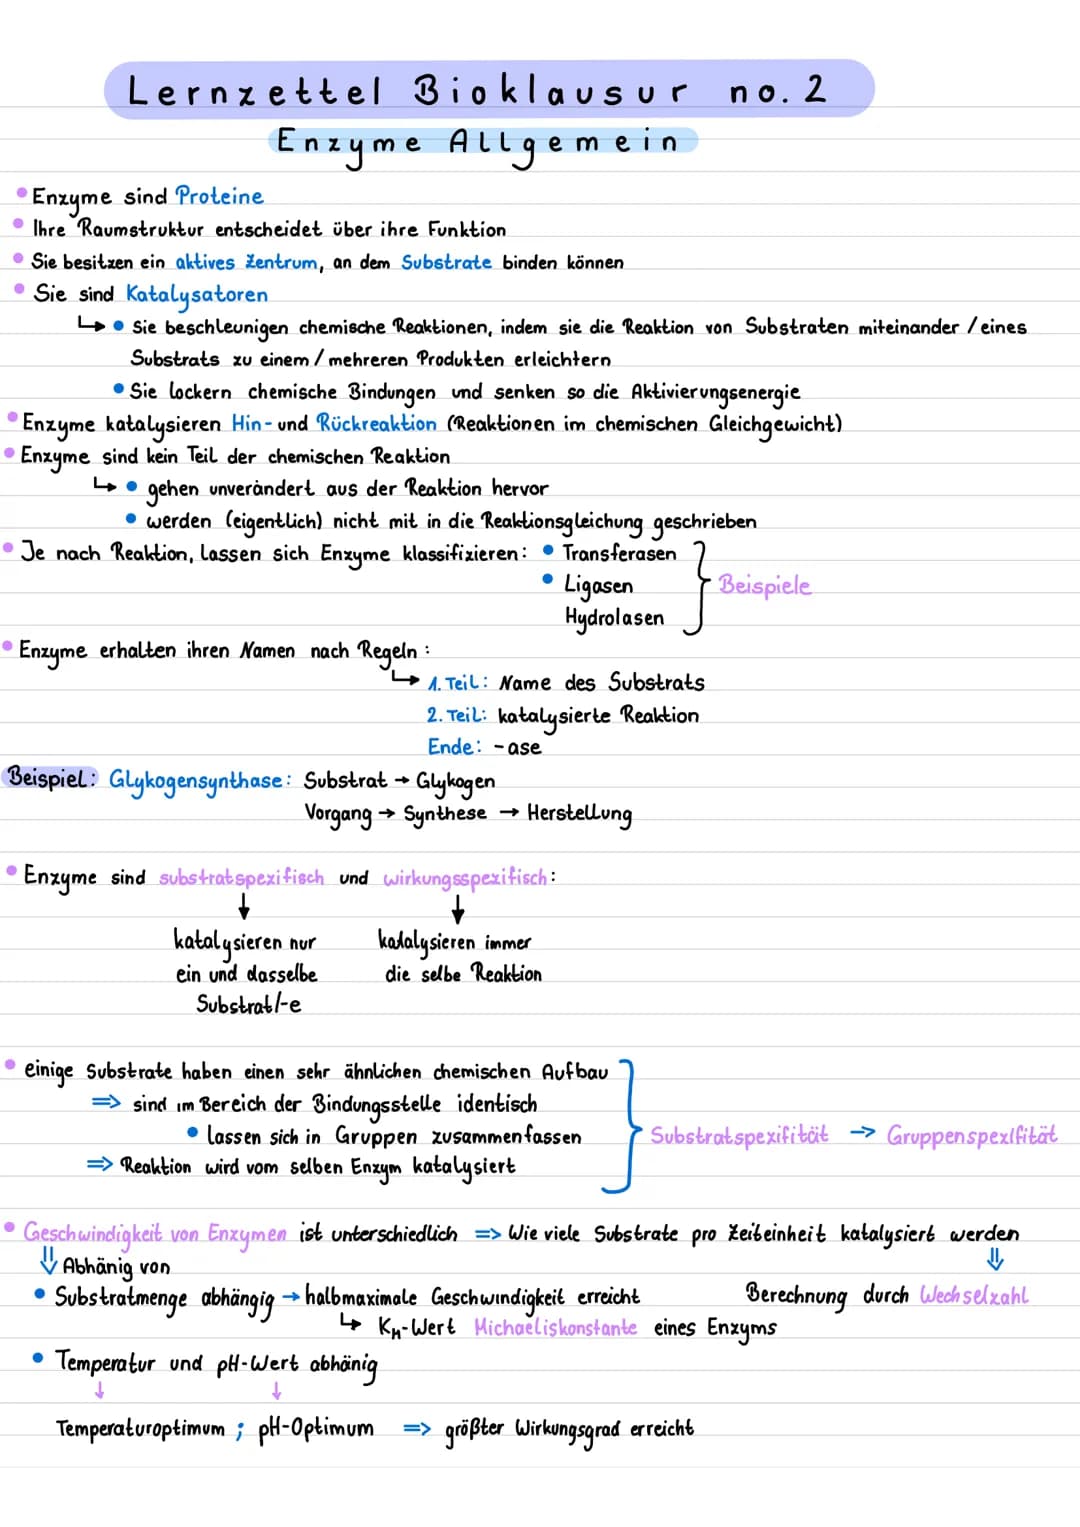 Lernzettel Bioklausur no. 2
Enzyme Allgemein
• Enzyme sind Proteine
• Ihre Raumstruktur entscheidet über ihre Funktion
• Sie besitzen ein aktives Zentrum, an dem Substrate binden können
• Sie sind Katalysatoren
↳ • Sie beschleunigen chemische Reaktionen, indem sie die Reaktion von Substraten miteinander / eines
Substrats zu einem / mehreren Produkten erleichtern
• Sie lockern chemische Bindungen und senken so die Aktivierungsenergie
• Enzyme katalysieren Hin- und Rückreaktion (Reaktionen im chemischen Gleichgewicht)
• Enzyme sind kein Teil der chemischen Reaktion
↳ • gehen unverändert aus der Reaktion hervor
• werden (eigentlich) nicht mit in die Reaktionsgleichung geschrieben
• Je nach Reaktion, lassen sich Enzyme klassifizieren: • Transferasen
• Ligasen } Beispiele
Hydrolasen
• Enzyme erhalten ihren Namen nach Regeln :
↳ 1. Teil: Name des Substrats
2. Teil: katalysierte Reaktion
Ende: -ase
Beispiel: Glykogensynthase: Substrat → Glykogen
Vorgang → Synthese → Herstellung
• Enzyme sind substratspezifisch und wirkungsspezifisch:
↓ ↓
katalysieren nur kadalysieren immer
ein und dasselbe die selbe Reaktion
Substrat/-e
• einige Substrate haben einen sehr ähnlichen chemischen Aufbau
⇒ sind im Bereich der Bindungsstelle identisch
• lassen sich in Gruppen zusammenfassen } Substratspezifität → Gruppenspezifität
⇒ Reaktion wird vom selben Enzym katalysiert
• Geschwindigkeit von Enzymen ist unterschiedlich ⇒ Wie viele Substrate pro Zeiteinheit katalysiert werden
⇓ Abhänig von ⇓
• Substratmenge abhängig → halbmaximale Geschwindigkeit erreicht Berechnung durch Wechselzahl
↳ KM-Wert Michaeliskonstante eines Enzyms
• Temperatur und pH-Wert abhänig
↓ ↓
Temperaturoptimum ; pH-Optimum ⇒ größter Wirkungsgrad erreicht